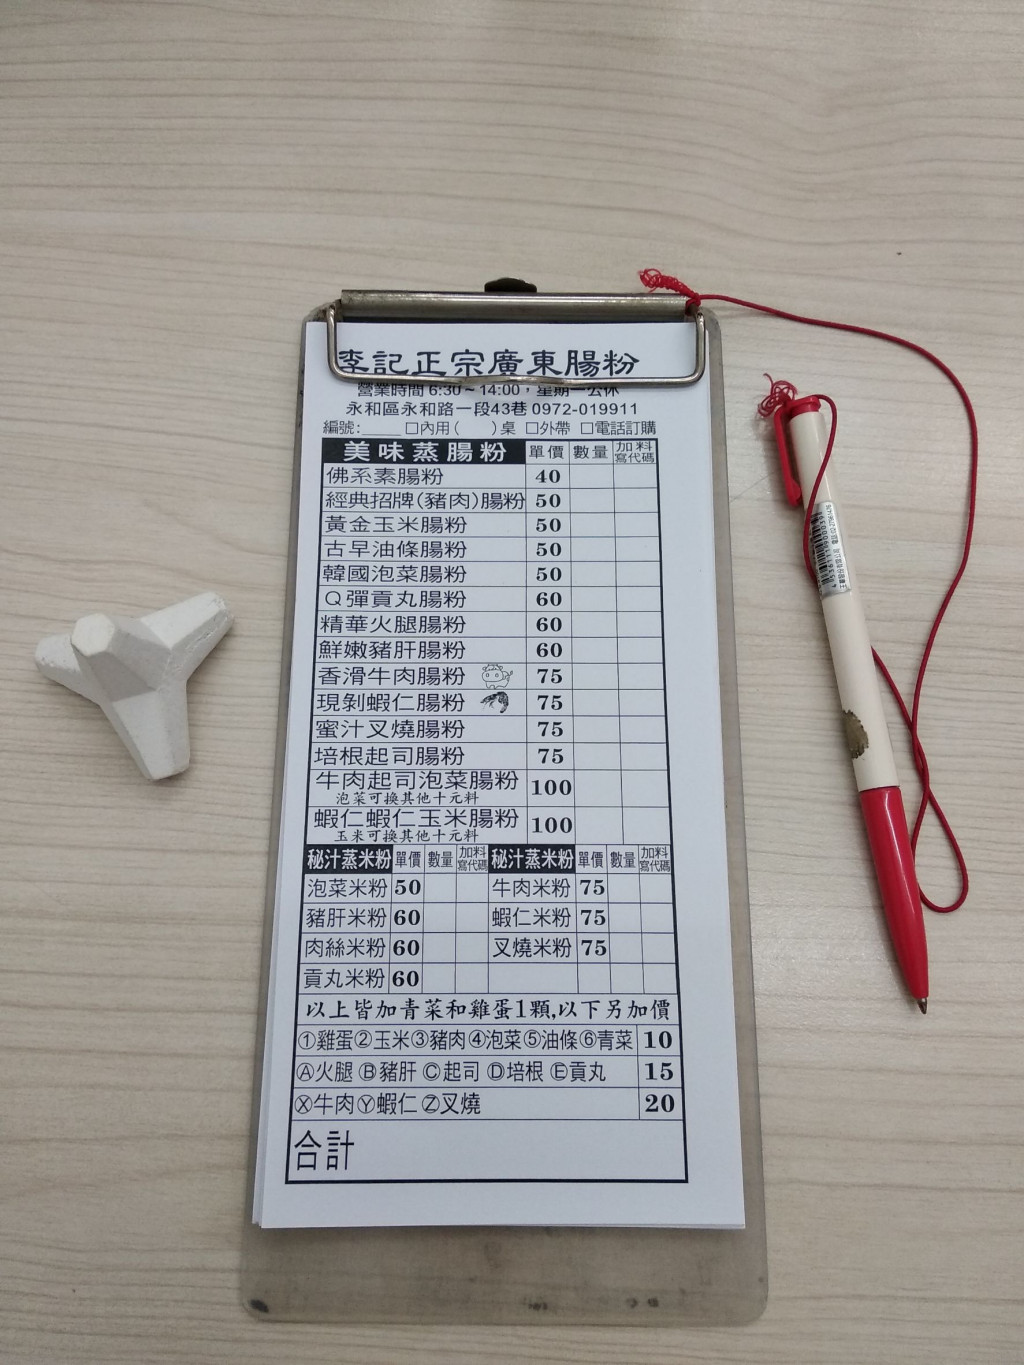 李記正宗廣東腸粉
營業時間 6:30~14:00，星期一公休
永和區永和路一段43巷 0972-019911
編號:_____ □內用(　　)桌 □外帶 □電話訂購
美味蒸腸粉 單價 數量 加料寫代碼
佛系素腸粉 40
經典招牌(豬肉)腸粉 50
黃金玉米腸粉 50
古早油條腸粉 50
韓國泡菜腸粉 50
Q彈貢丸腸粉 60
精華火腿腸粉 60
鮮嫩豬肝腸粉 60
香滑牛肉腸粉 75
現剝蝦仁腸粉 75
蜜汁叉燒腸粉 75
培根起司腸粉 75
牛肉起司泡菜腸粉 100
泡菜可換其他十元料
蝦仁蝦仁玉米腸粉 100
玉米可換其他十元料
秘汁蒸米粉 單價 數量 加料寫代碼 秘汁蒸米粉 單價 數量 加料寫代碼
泡菜米粉 50 牛肉米粉 75
豬肝米粉 60 蝦仁米粉 75
肉絲米粉 60 叉燒米粉 75
貢丸米粉 60
以上皆加青菜和雞蛋1顆,以下另加價
①雞蛋②玉米③豬肉④泡菜⑤油條⑥青菜 10
Ⓐ火腿 Ⓑ豬肝 Ⓒ起司 Ⓓ培根 Ⓔ貢丸 15
Ⓧ牛肉Ⓨ蝦仁 Ⓩ叉燒 20
合計